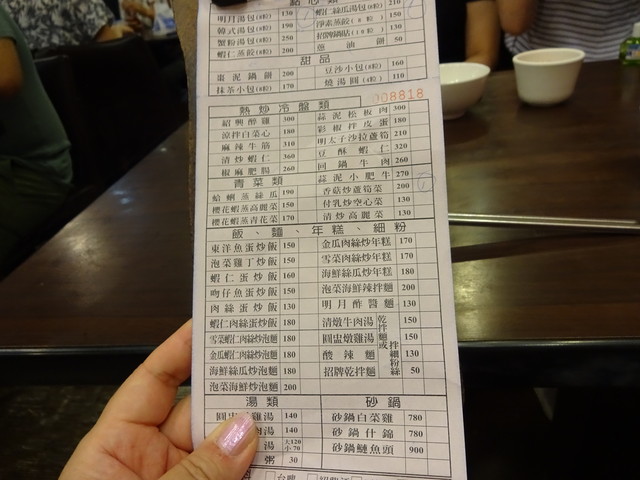 點心類
明月湯包(8粒) 130 蝦仁絲瓜湯包(8粒) 210
韓式湯包(8粒) 190 淨素蒸餃(8粒) 150
蟹粉湯包(8粒) 250 招牌鍋貼(10粒) 130
蝦仁蒸餃(8粒) 200 蔥油餅 50
甜品
棗泥鍋餅 200 豆沙小包(8粒) 160
抹茶小包(8粒) 170 燒湯圓(8粒) 110
008818
熱炒冷盤類
紹興醉雞 300 蒜泥松板肉 300
涼拌白菜心 180 彩椒拌皮蛋 180
麻辣牛筋 310 明太子沙拉蘆筍 210
清炒蝦仁 360 豆酥蝦仁 320
椒麻肥腸 260 回鍋牛肉 260
青菜類 蒜泥小肥牛 270
蛤蜊蒸絲瓜 190 香菇炒蘆筍菜 200
櫻花蝦蒸高麗菜 150 付乳炒空心菜 130
櫻花蝦蒸青花菜 170 清炒高麗菜 130
飯、麵、年糕、細粉
東洋魚蛋炒飯 150 金瓜肉絲炒年糕 170
泡菜雞丁炒飯 150 雪菜肉絲炒年糕 170
蝦仁蛋炒飯 160 海鮮絲瓜炒年糕 180
吻仔魚蛋炒飯 150 泡菜海鮮辣拌麵 200
肉絲蛋炒飯 130 明月酢醬麵 130
蝦仁肉絲蛋炒飯 180 清燉牛肉湯 乾拌麵或拌細粉絲 150
雪菜蝦仁肉絲炒泡麵 180 圓盅燉雞湯 150
金瓜蝦仁肉絲炒泡麵 180 酸辣麵 130
海鮮絲瓜炒泡麵 180 招牌乾拌麵 50
泡菜海鮮炒泡麵 200
湯類 砂鍋
圓盅雞湯 140 砂鍋白菜雞 780
肉湯 140 砂鍋什錦 780
湯 大120 小70 砂鍋鰱魚頭 900
粥 30